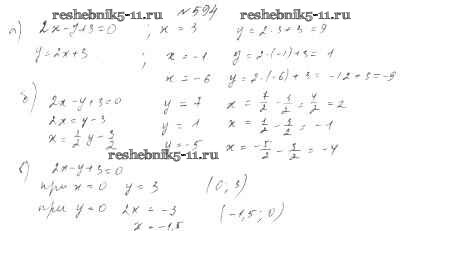 №594
reshebnik5-11.ru reshebnik5-11.ru
а) 2x-y+3=0 ; x = 3 y = 2·3+3=9
y=2x+3 ; x = -1 y = 2·(-1)+3= 1
x = -6 y = 2·(-6)+3 = -12+3=-9
б) 2x-y+3=0 y = 7 x = 7/2 - 3/2 = 4/2 = 2
2x = y-3 y = 1 x = 1/2 - 3/2 = -1
x = 1/2 y - 3/2 y = -5 x = -5/2 - 3/2 = -4
reshebnik5-11.ru
в) 2x-y+3=0
при x = 0 y = 3 (0; 3)
при y = 0 2x = -3 (-1,5; 0)
x = -1,5